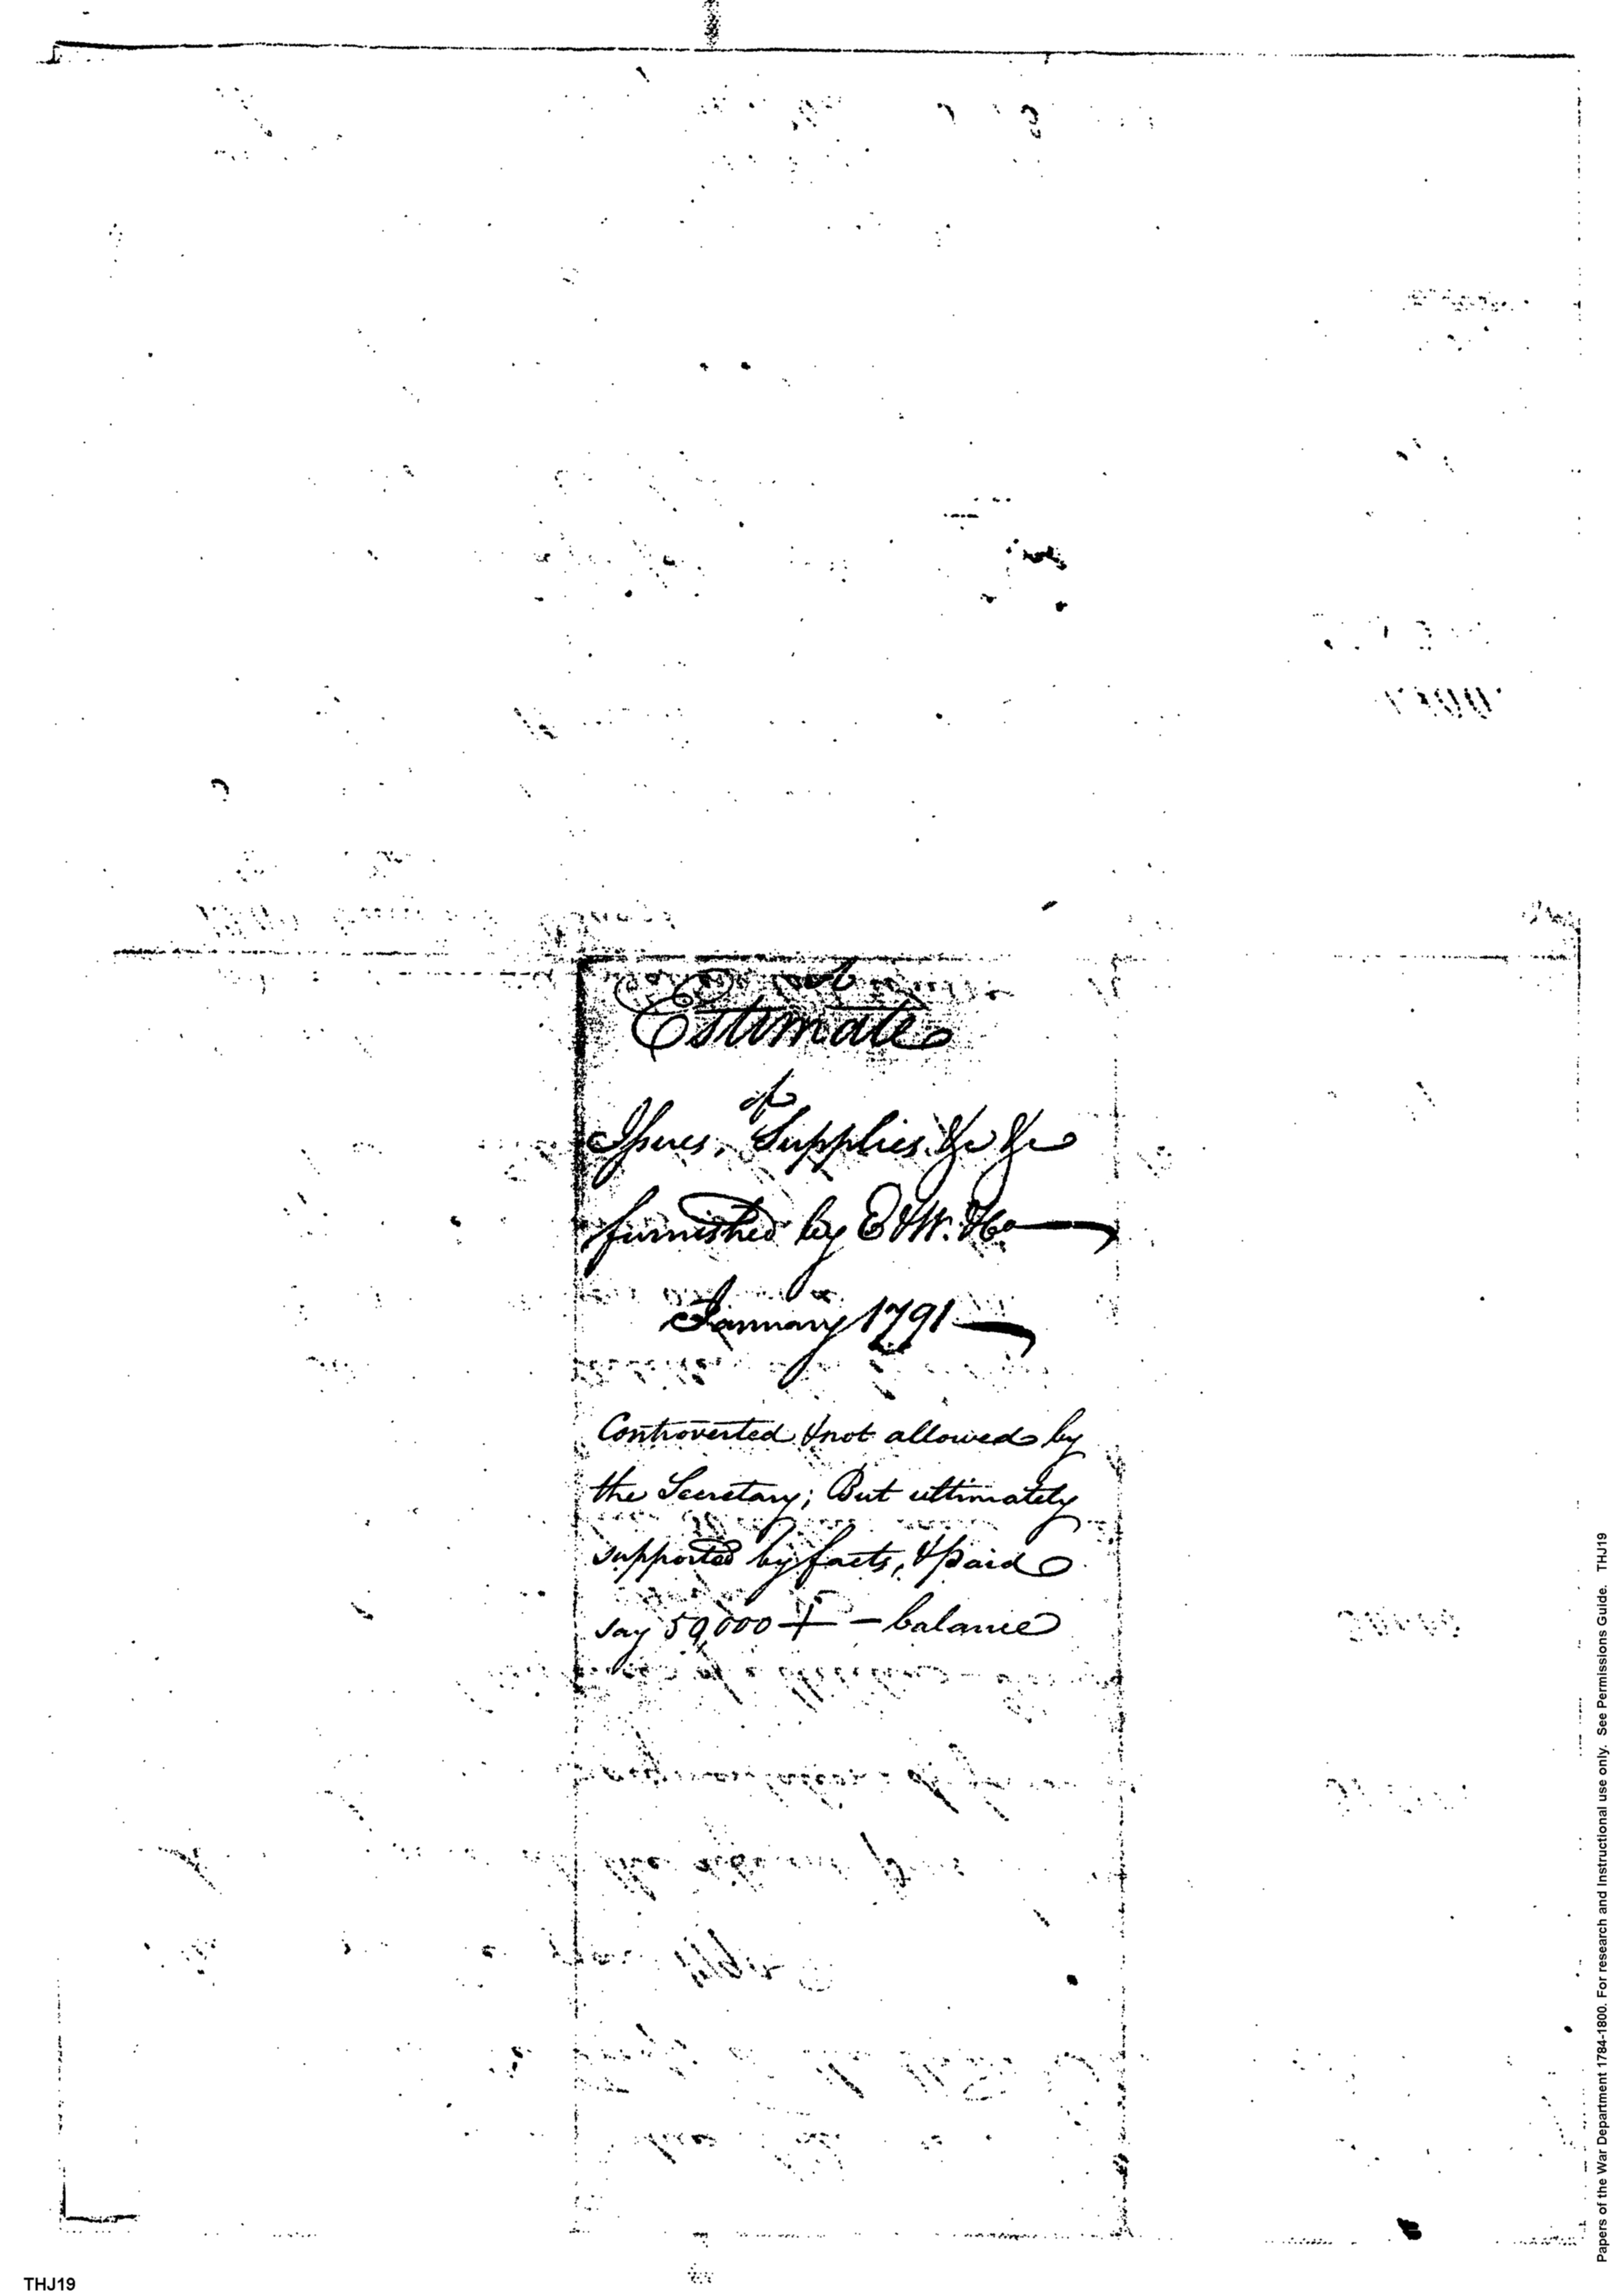 Estimate
of
Issues, Supplies &c &c
furnished by E & W. & Co
January 1791
Controverted & not allowed by
the Secretary; But ultimately
supported by facts, & paid
say 50,000 + — balance
Papers of the War Department 1784-1800. For research and Instructional use only. See Permissions Guide. THJ19
THJ19